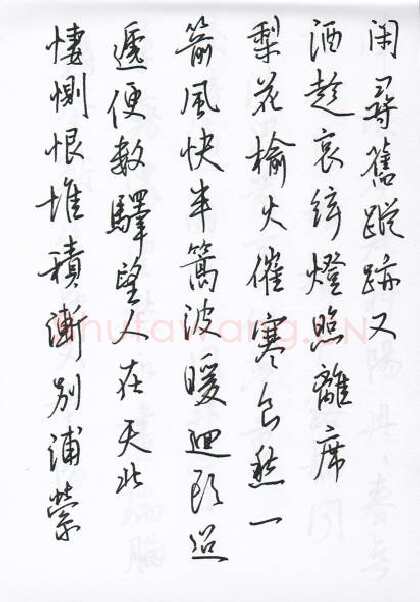 閑尋舊蹤跡又
酒趁哀絃燈照離席
梨花榆火催寒食愁一
箭風快半篙波暖迴頭迢
遞便數驛望人在天北
悽惻恨堆積漸別浦縈
shufawang.CN